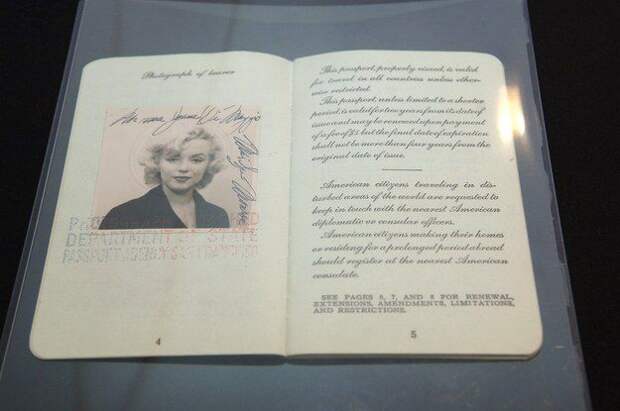 Photograph of bearer
Norma Jeane Di Maggio
DEPARTMENT OF STATE
PASSPORT
4
This passport, properly visaed, is valid
for travel in all countries unless other-
wise restricted.
This passport, unless limited to a shorter
period, is valid for two years from its date of
issue and may be renewed upon payment
of a fee of $5 but the final date of expiration
shall not be more than four years from the
original date of issue.
American citizens traveling in dis-
turbed areas of the world are requested to
keep in touch with the nearest American
diplomatic or consular officers.
American citizens making their homes
or residing for a prolonged period abroad
should register at the nearest American
consulate.
SEE PAGES 6, 7, AND 8 FOR RENEWAL,
EXTENSIONS, AMENDMENTS, LIMITATIONS,
AND RESTRICTIONS.
5